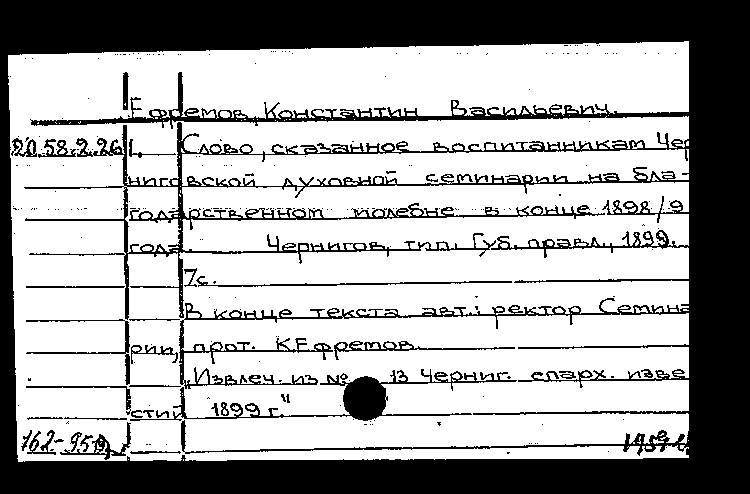 Ефремов, Константин Васильевич.
20.58.2.261. Слово, сказанное воспитанникам Чер
ниговской духовной семинарии на бла-
годарственном молебне в конце 1898/9
года. Чернигов, тип. Губ. правл., 1899.
7с.
В конце текста авт.: ректор Семина
рии, прот. К.Ефремов.
„Извлеч. из № 13 Черниг. епарх. изве
стий 1899 г."
162-959